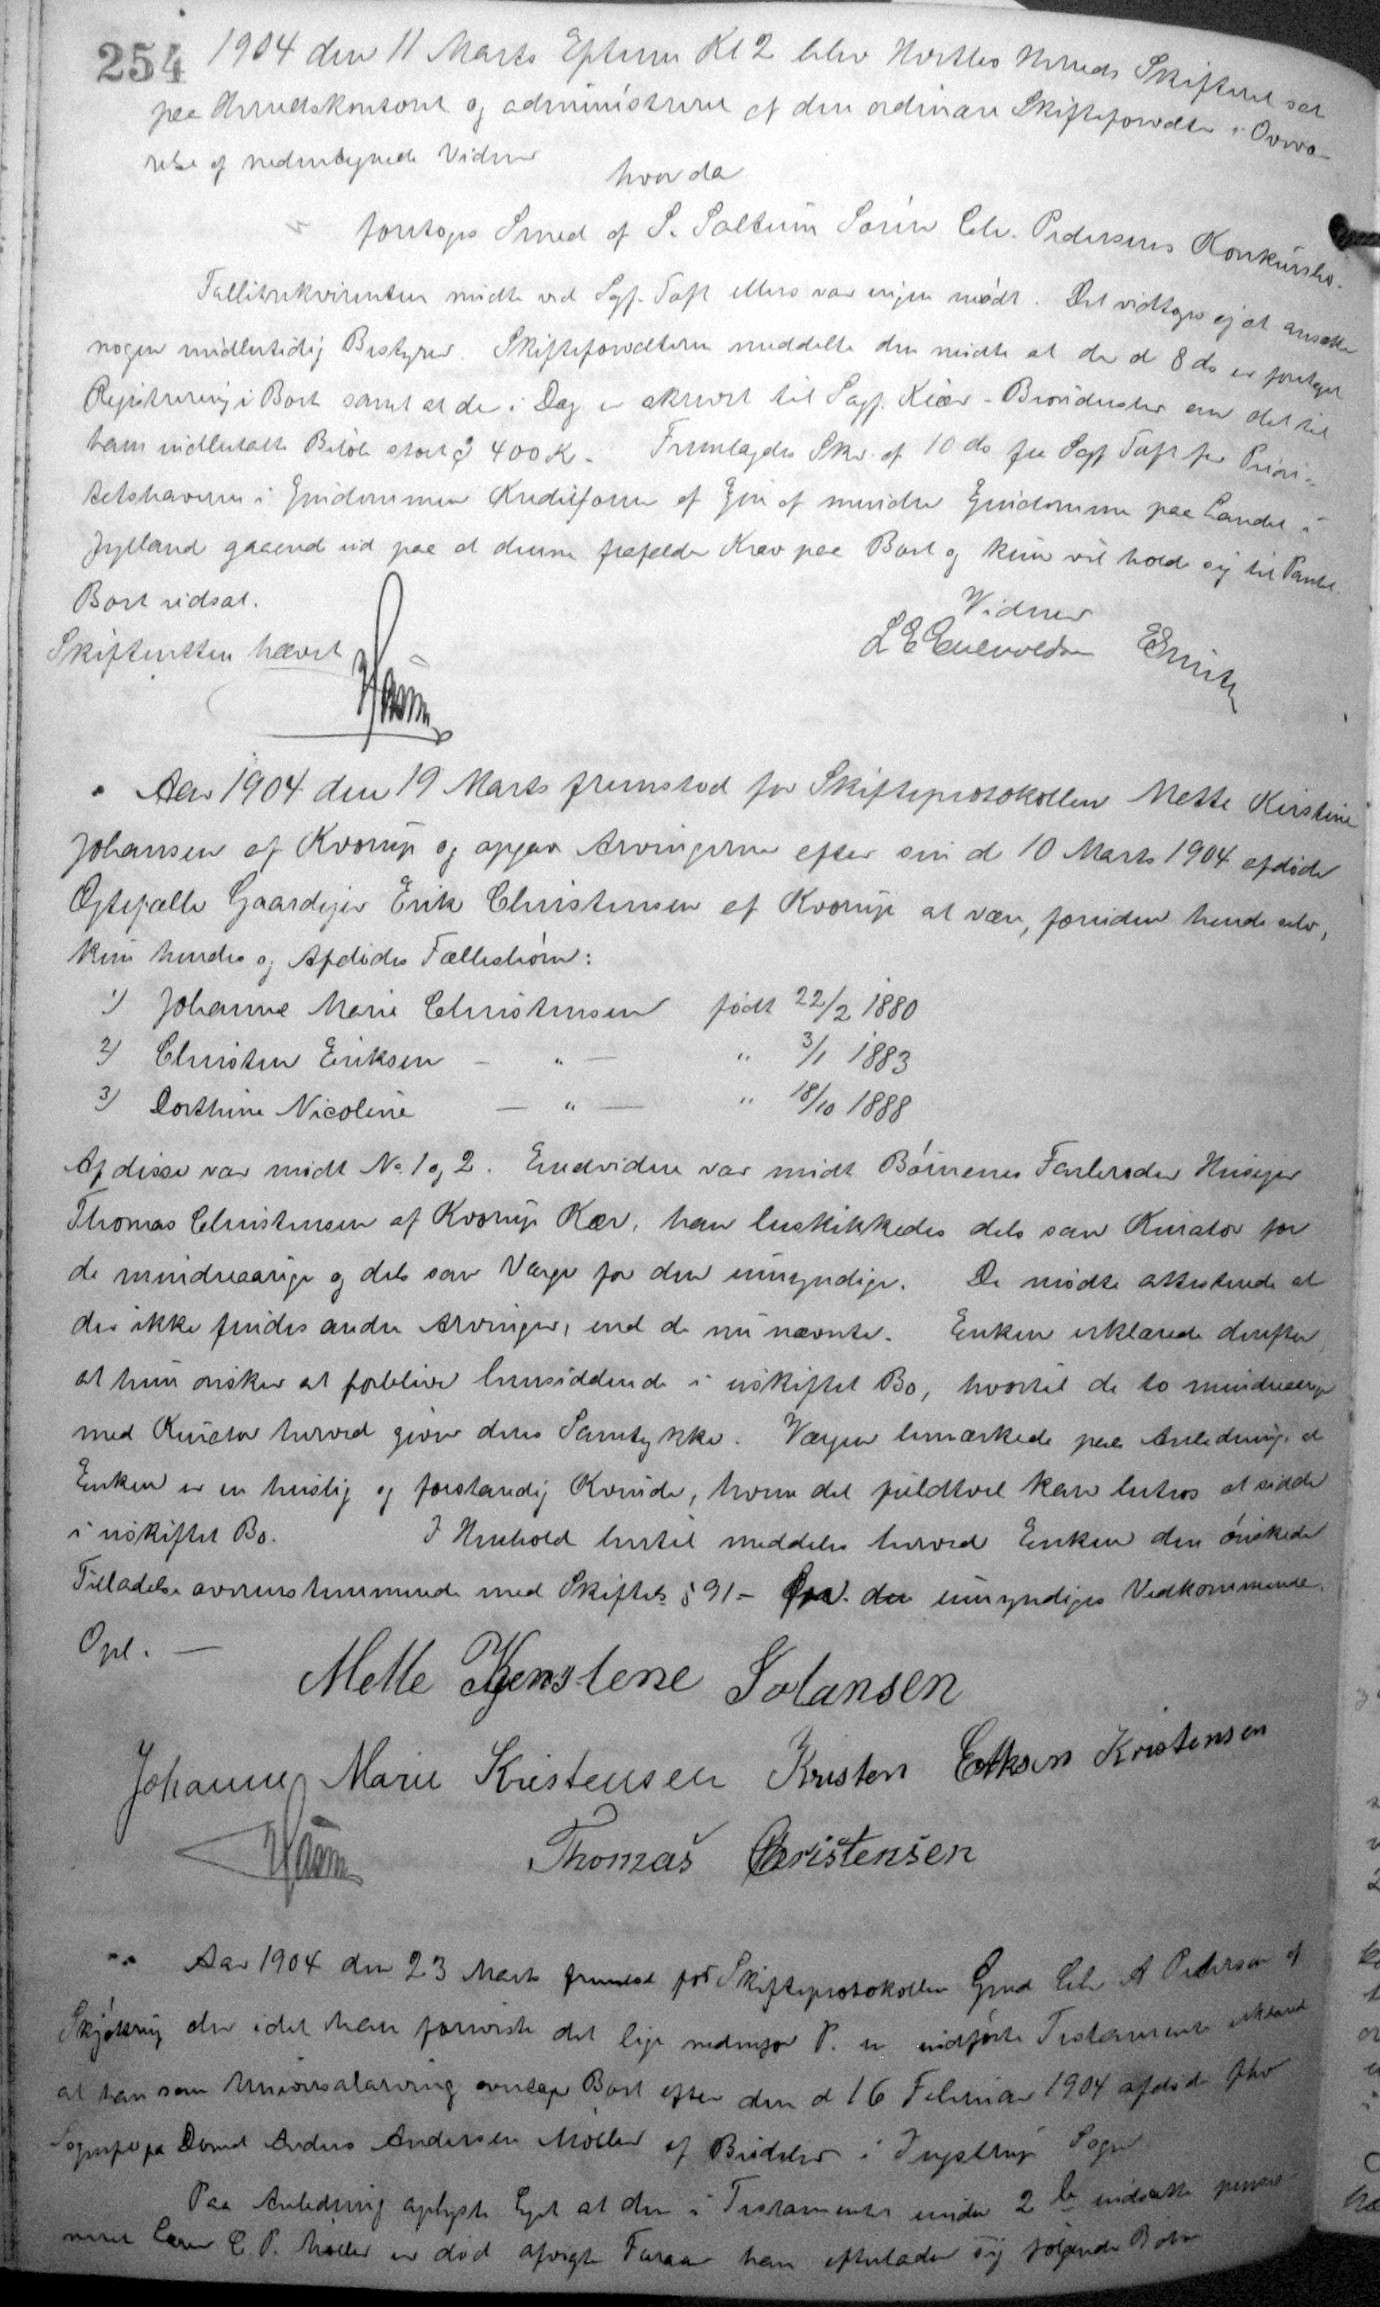 254
1904 den 11 Marts Efterm Kl 2 blev Hvetbo Herreds Skifteret sat
paa Herredskontoret og administreret af den ordinære Skifteforvalter i Overvæ-
relse af nedentegnede Vidner
hvor da
foretoges Smed af S. Saltum Søren Chr. Pedersens Konkursbo.
Fallitrekvirenten mødte ved Sagf. Toft ellers var ingen mødt. Det vedtoges ej at ansætte
nogen midlertidig Bestyrer. Skifteforvalteren meddelte den mødte at der d 8 ds er foretaget
Registrering i Boet samt at der i Dag er skrevet til Sagf. Kiær-Brønderslev om det til
ham indbetalte Beløb stort 400 K. Fremlagdes Skr. af 10 ds fra Sagf Toft for Priori-
tetshaveren i Ejendommen Kreditforen af Ejere af mindre Ejendomme paa Landet i
Jylland gaaende ud paa at denne frafalder Krav paa Boet og kun vil holde sig til Pantet
Boet udsat.
Vidner
Skifteretten hævet
L E Enevoldsen ESmith
Aar 1904 den 19 Marts fremstod for Skifteprotokollen Mette Kirstine
Johansen af Kvorup og opgav Arvingerne efter sin d 10 Marts 1904 afdøde
Ægtefælle Gaardejer Erik Christensen af Kvorup at være, foruden hende selv,
kun hendes og Afdødes Fællesbørn:
1) Johanne Marie Christensen født 22/2 1880
2) Christen Eriksen — " — " 3/1 1883
3) Dorthine Nicoline — " — " 18/10 1888
Af disse var mødt No 1 og 2. Endvidere var mødt Børnenes Farbroder Husejer
Thomas Christensen af Kvorup Kær, han beskikkedes dels som Kurator for
de mindreaarige og dels som Værge for den umyndige. De mødte attesterede at
der ikke findes andre Arvinger, end de nu nævnte. Enken erklærede derefter
at hun ønsker at forblive hensiddende i uskiftet Bo, hvortil de to mindreaarige
med Kurator herved giver deres Samtykke. Værgen bemærkede paa Anledning at
Enken er en huslig og forstandig Kvinde, hvem det fuldtvel kan betros at sidde
i uskiftet Bo. I Henhold hertil meddeles herved Enken den ønskede
Tilladelse overensstemmende med Skiftel. § 91 - for den umyndiges Vedkommende.
Opl. —
Mette Kjerstene Johansen
Johanne Marie Kristensen Kristen Eriksen Kristensen
Thomas Christensen
Aar 1904 den 23 Marts fremstod for Skifteprotokollen Gmd Chr A Pedersen af
der idet han foreviste det lige nedenfor P. er indførte Testamente erklærede
at han som Universalarving overtager Boet efter den d 16 Februar 1904 afdøde fhv
Anders Andersen Møller af i Ingstrup Sogn
Paa Anledning oplyste at den i Testamentet under 2 b indsatte pensio-
neret Lærer C. P. Møller er død afvigte Foraar han efterlader sig følgende Børn